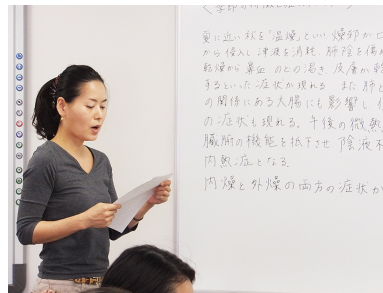 夏に近い秋を「温燥」といい 燥邪が口
から侵入し 津液を消耗 肺陰を傷
乾燥から 鼻血 のどの渇き 皮膚が乾
するといった症状が現れる また 肺と
の関係にある大腸にも影響し
の症状も現れる。午後の微熱
臓腑の機能を低下させ 陰液不
内熱症となる。
内燥と外燥の両方の症状が